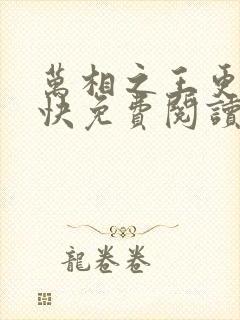 萬相之王更
快免費閱讀
龍卷卷